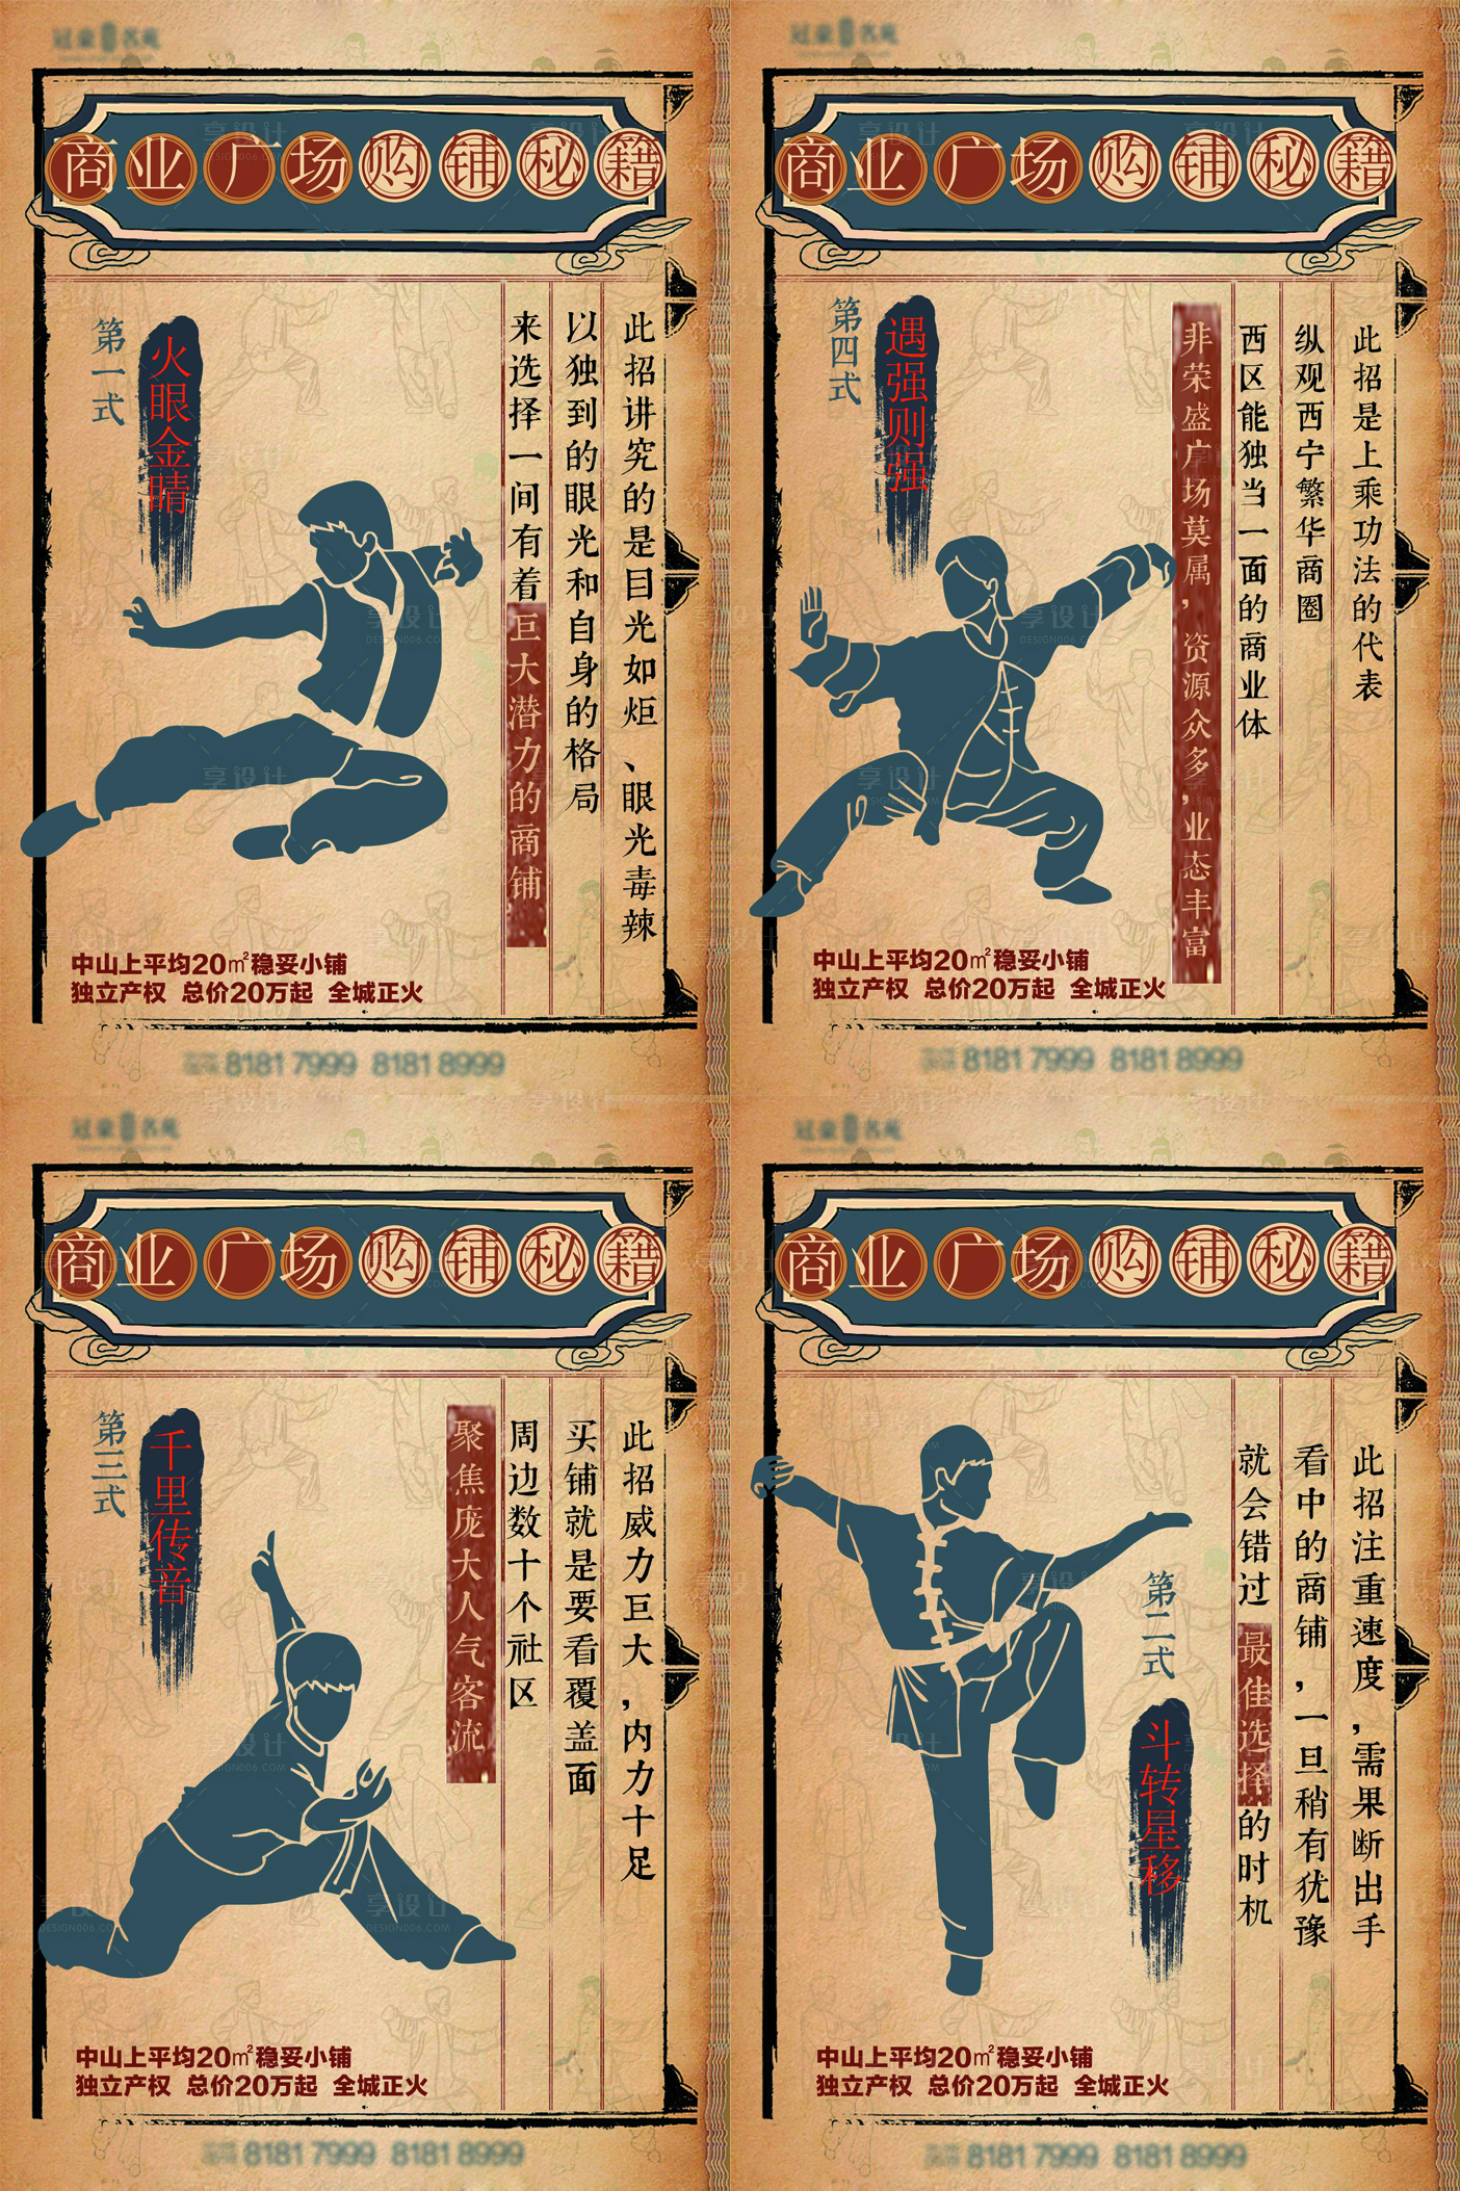 商业广场购铺秘籍
第一式
火眼金睛
此招讲究的是目光如炬、眼光毒辣
以独到的眼光和自身的格局
来选择一间有着巨大潜力的商铺
中山上平均20㎡稳妥小铺
独立产权 总价20万起 全城正火
8181 7999 8181 8999
商业广场购铺秘籍
第四式
遇强则强
此招是上乘功法的代表
纵观西宁繁华商圈
西区能独当一面的商业体
非荣盛广场莫属，资源众多，业态丰富
中山上平均20㎡稳妥小铺
独立产权 总价20万起 全城正火
8181 7999 8181 8999
商业广场购铺秘籍
第三式
千里传音
此招威力巨大，内力十足
买铺就是要看覆盖面
周边数十个社区
聚焦庞大人气客流
中山上平均20㎡稳妥小铺
独立产权 总价20万起 全城正火
8181 7999 8181 8999
商业广场购铺秘籍
第二式
斗转星移
此招注重速度，需果断出手
看中的商铺，一旦稍有犹豫
就会错过最佳选择的时机
中山上平均20㎡稳妥小铺
独立产权 总价20万起 全城正火
8181 7999 8181 8999
享设计
DESIGN006.COM